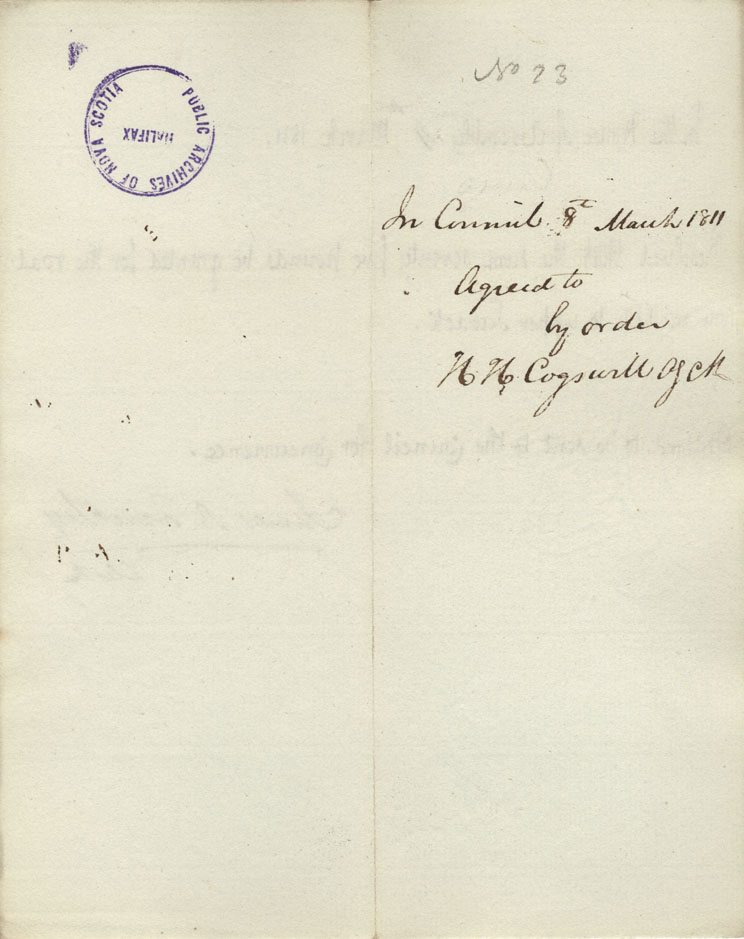 No 23
PUBLIC ARCHIVES OF NOVA SCOTIA
HALIFAX
In Council 8th March 1811
Agreed to
by order
H H Cogswell